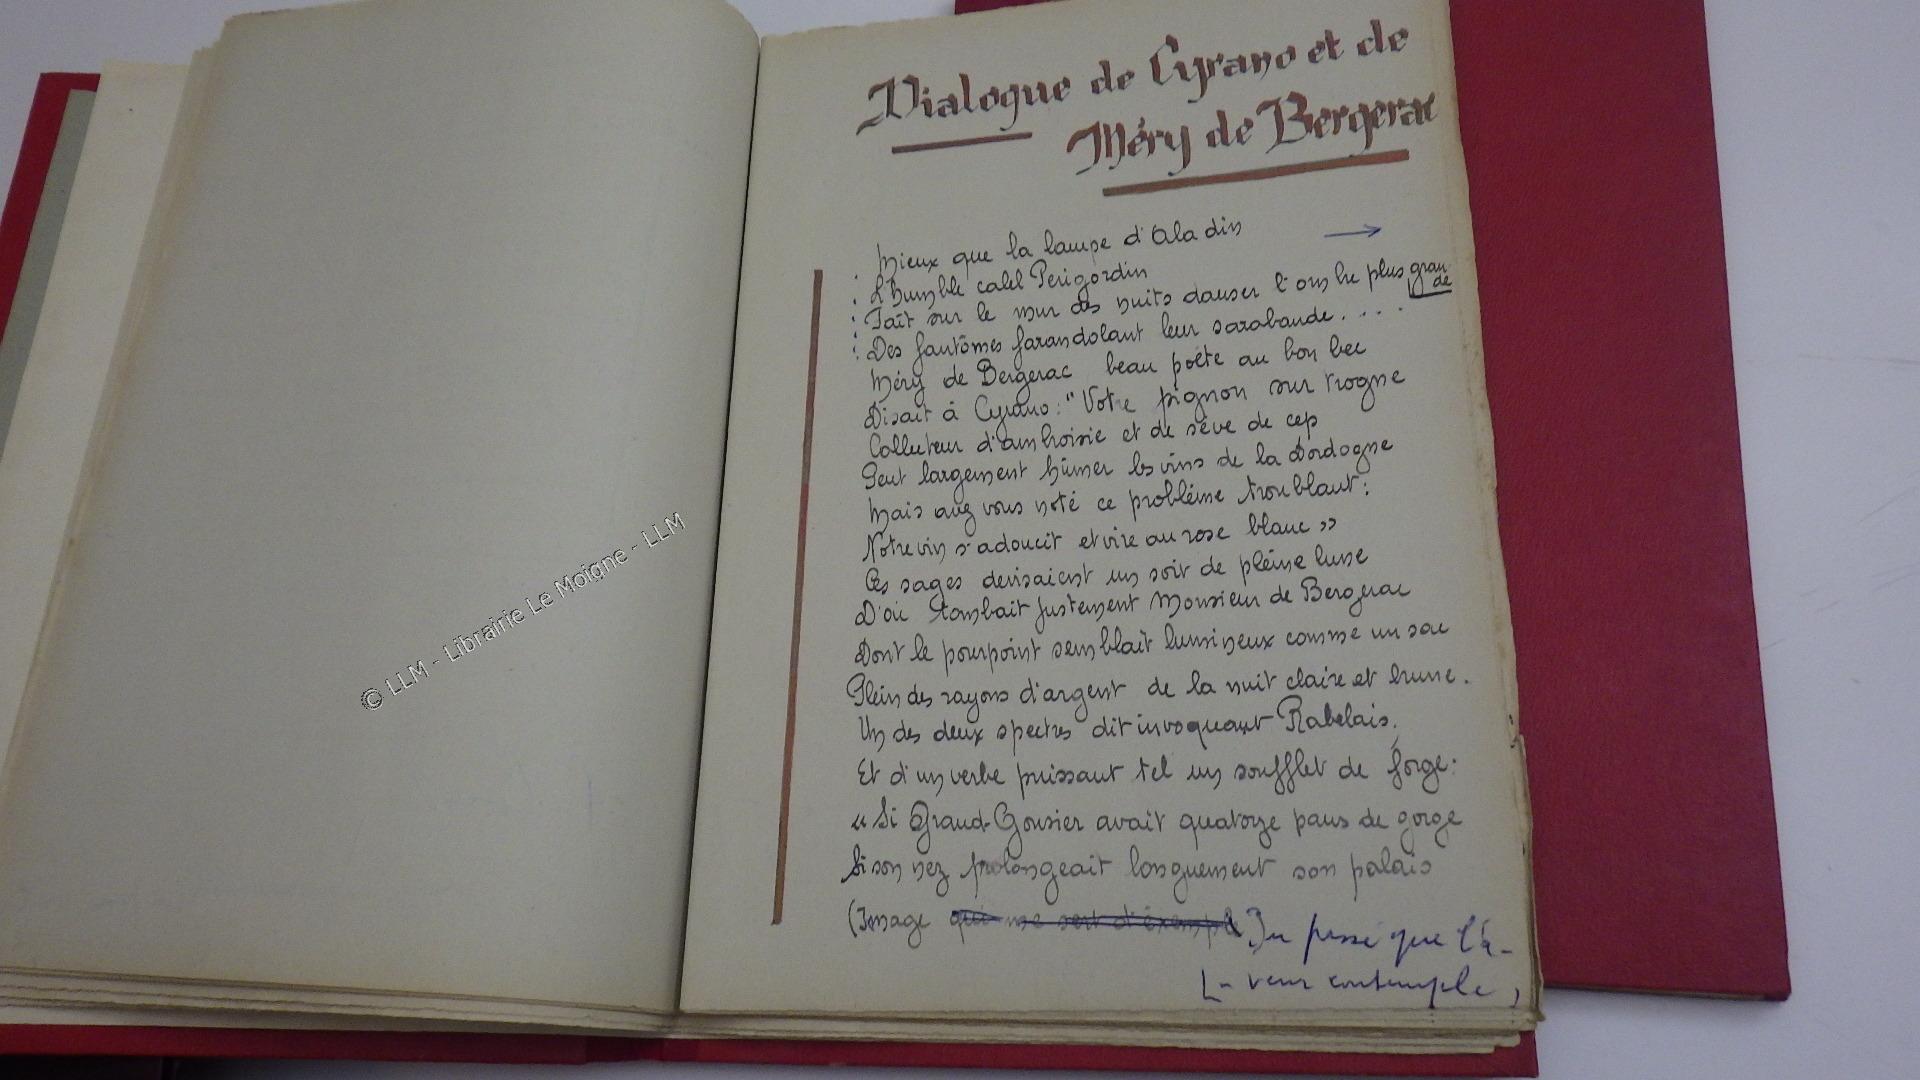 Dialogue de Cyrano et de
Méry de Bergerac
Mieux que la lampe d'Aladin
L'humble calel Périgordin
Fait sur le mur des nuits danser l'ombre plus gran-
de
Des fantômes farandolant leur sarabande. . . .
Méry de Bergerac beau poète au bon bec
Disait à Cyrano : "Votre pignon sur trogne
Collecteur d'ambroisie et de sève de cep
Peut largement humer les vins de la Dordogne
Mais avez vous noté ce problème troublant :
Notre vin s'adoucit et vire au rose blanc »
Ces sages devisaient un soir de pleine lune
D'où tombait justement Monsieur de Bergerac
Dont le pourpoint semblait lumineux comme un sac
Plein des rayons d'argent de la nuit claire et brune.
Un des deux spectres dit invoquant Rabelais,
Et d'un verbe puissant tel un soufflet de forge :
« Si Grand-Gousier avait quatorze pans de gorge
Si son nez prolongeait longuement son palais
(Image qui me sert d'exemple Du passé que l'a-
-venir contemple,
© LLM - Librairie Le Moigne - LLM